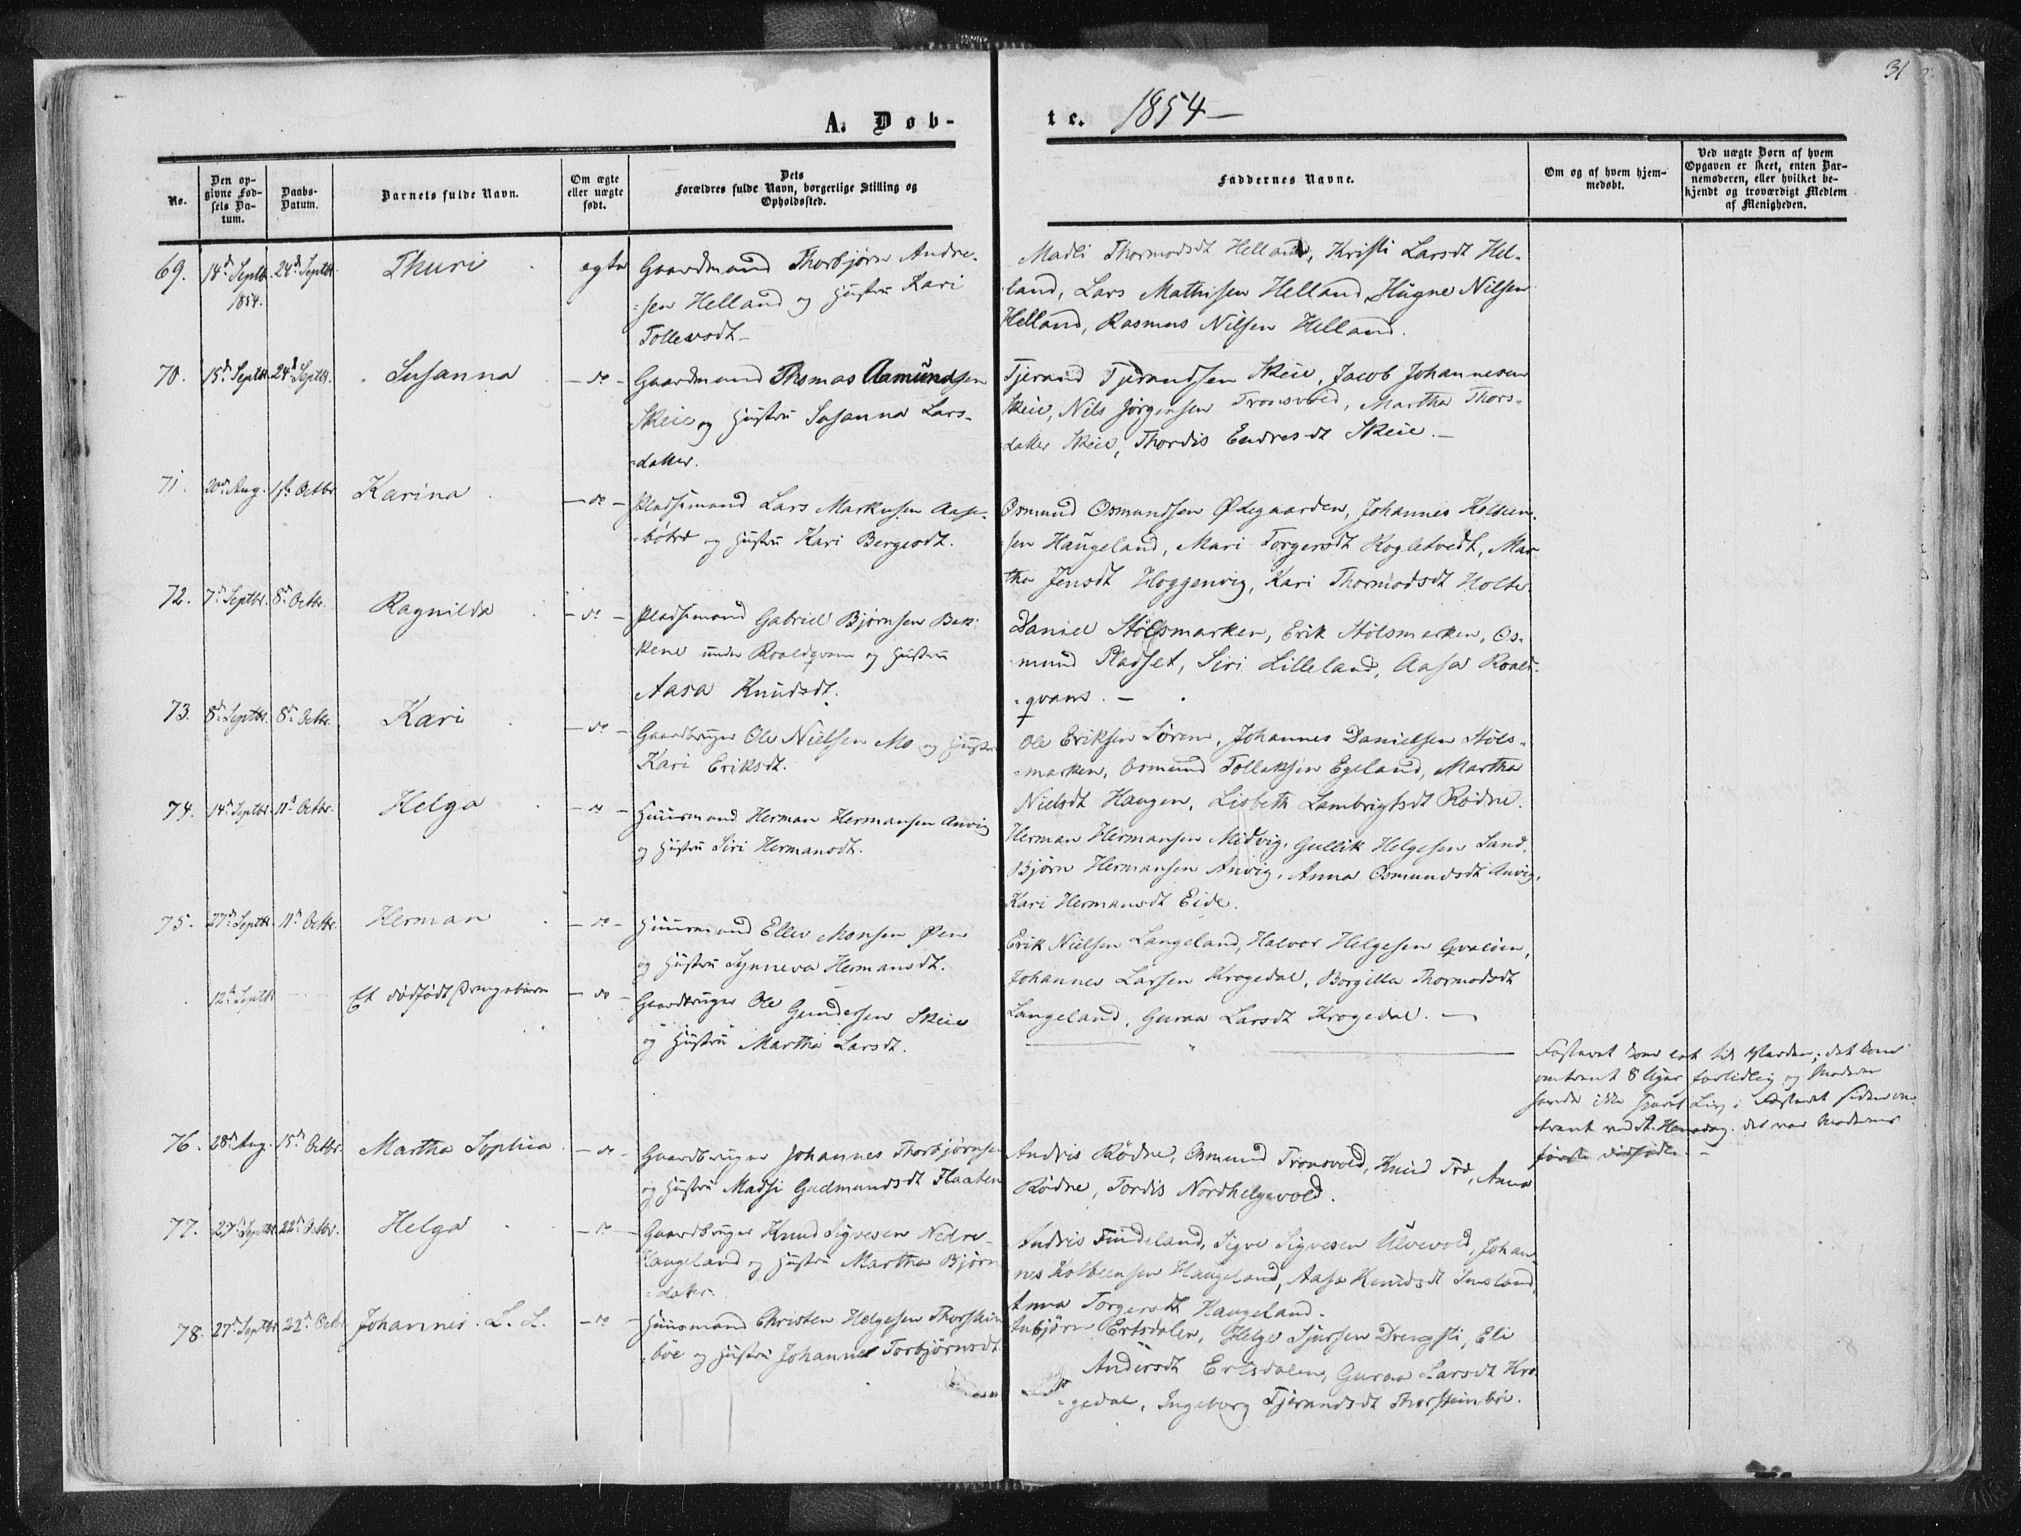 31
A. Døb-
te. 1854 —
No.
Den op-
givne Fød-
sels Da-
tum.
Daabs-
Datum.
Barnets fulde Navn.
Om ægte
eller uægte
født.
Dets
Forældres fulde Navn, borgerlige Stilling og
Opholdssted.
Faddernes Navne.
Om og af hvem hjem-
medøbt.
Ved uægte Børn af hvem
Opgaven er skeet, enten Bar-
nemoderen, eller hvilket be-
kjendt og troværdigt Medlem
af Menigheden.
69. 14d Septbr. 24d Septbr. Thuri egte Gaardmand Thorbjørn Andre-
1854. -sen Helland og Hustru Kari
Tollevsdt —
Madli Thormodsdt Helland, Kristi Larsdt Hel-
land, Lars Mathisen Helland, Hugne Nilsen
Helland, Rasmus Nilsen Helland.
70. 15d Septbr. 24d Septbr. Susanna — do — Gaardmand Thomas Aamundsen
Skeie og Hustru Susanna Lars-
-datter.
Tjerand Tjerandsen Skeie, Jacob Johannesen
Skeie, Nils Jørgensen Tronsvold, Martha Thors-
datter Skeie, Thordis Endresdt Skeie. —
71. 20de Aug. 1ste Octbr. Karina — do — Pladsmand Lars Markusen Aase-
-bötre og Hustru Kari Bergesdt.
Osmund Osmundsen Ødegaarden, Johannes Kolbein-
sen Haugeland, Mari Torgersdt Rogletvedt, Mar-
tha Jensdt Hoggenvig, Kari Thormodsdt Holte.
72. 7d Septbr. 8d Octbr. Ragnilda — do — Pladsmand Gabriel Bjørnsen Bak-
kene under Roaldqvam og Hustru
Aasa Knudsdt.
Daniel Stølsmarken, Erik Stølsmarken, Os-
mund Pladset, Siri Lilleland, Aasa Roald-
-qvam. —
73. 8d Septbr. 8d Octbr. Kari — do — Gaardbruger Ole Nielsen Mo og Hustru
Kari Eriksdt.
Ole Eriksen Sørem, Johannes Danielsen Støls-
-marken, Osmund Tollaksen Egeland, Martha
Nielsdt Haugen, Lisbeth Lambrigtsdt Rödne.
74. 14d Septbr. 11d Octbr. Helga — do — Huusmand Herman Hermansen Anvig
og Hustru Siri Hermansdt.
Herman Hermansen Midvig, Gullik Helgesen Sand,
Bjørn Hermansen Anvig, Anna Osmundsdt Anvig,
Kari Hermansdt Eide.
75. 27d Septbr. 11d Octbr. Herman — do — Huusmand Ellev Monsen Øen
og Hustru Synneva Hermansdt.
Erik Nielsen Langeland, Halvor Helgesen Qvaløen,
Johannes Larsen Krogedal, Borgilla Thormodsdt
Langeland, Guroa Larsdt Krogedal. —
12te Septbr. Et dødfødt Drengebarn — do — Gaardbruger Ole Gundersen Skeie
og Hustru Martha Larsdt.
Fosteret kom til Verden; det kom
omtrent 8 Uger fortidlig og Moderen
havde ikke sporet Liv i Fosteret siden om-
trent ved St. Hansdag. det var Moderens
første dødfødte. —
76. 28d Aug. 15d Octbr. Martha Sophia — do — Gaardbruger Johannes Thorbjørnsen
og Hustru Madsi Gudmundsdt Flaaten
Andris Rödne, Osmund Tronsvold, Knud Træ, Anna
Rödne, Tordis Nordhelgevold.
77. 27d Septbr. 22d Octbr. Helga — do — Gaardbruger Knud Sigvesen Nedre-
Haugeland og Hustru Martha Bjørns-
-datter.
Andris Findeland, Sigve Sigvesen Ulvevold, Johan-
nes Kolbeensen Haugeland, Aasa Knudsdt Imsland,
Anna Torgersdt Haugeland.
78. 27d Septbr. 22d Octbr. Johannes. L. L. — do — Huusmand Christen Helgesen Thorstein-
böe og Hustru Johanne Torbjørnsdt
Anbjörn Ertsdalen, Helge Sjursen Drengsti, Eli
Andersdt Ertsdalen, Guroa Larsdt Kro-
-gedal, Ingeborg Tjerandsdt Thorsteinböe.